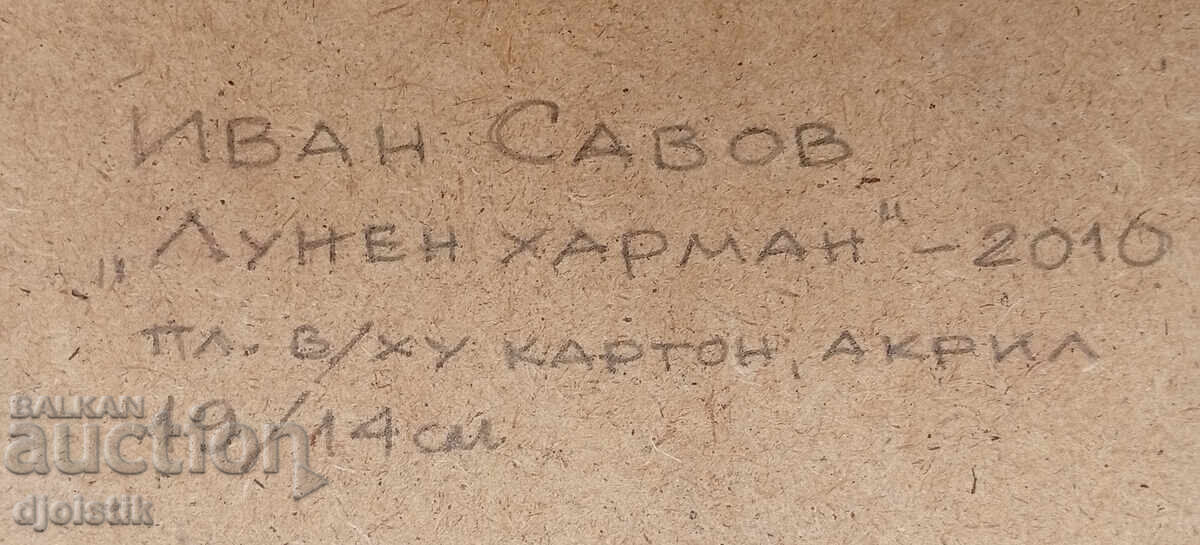 Иван Савов
„Лунен харман" - 2010
пл. в/ху картон, акрил
19/14 см
BALKAN
auction
djoistik